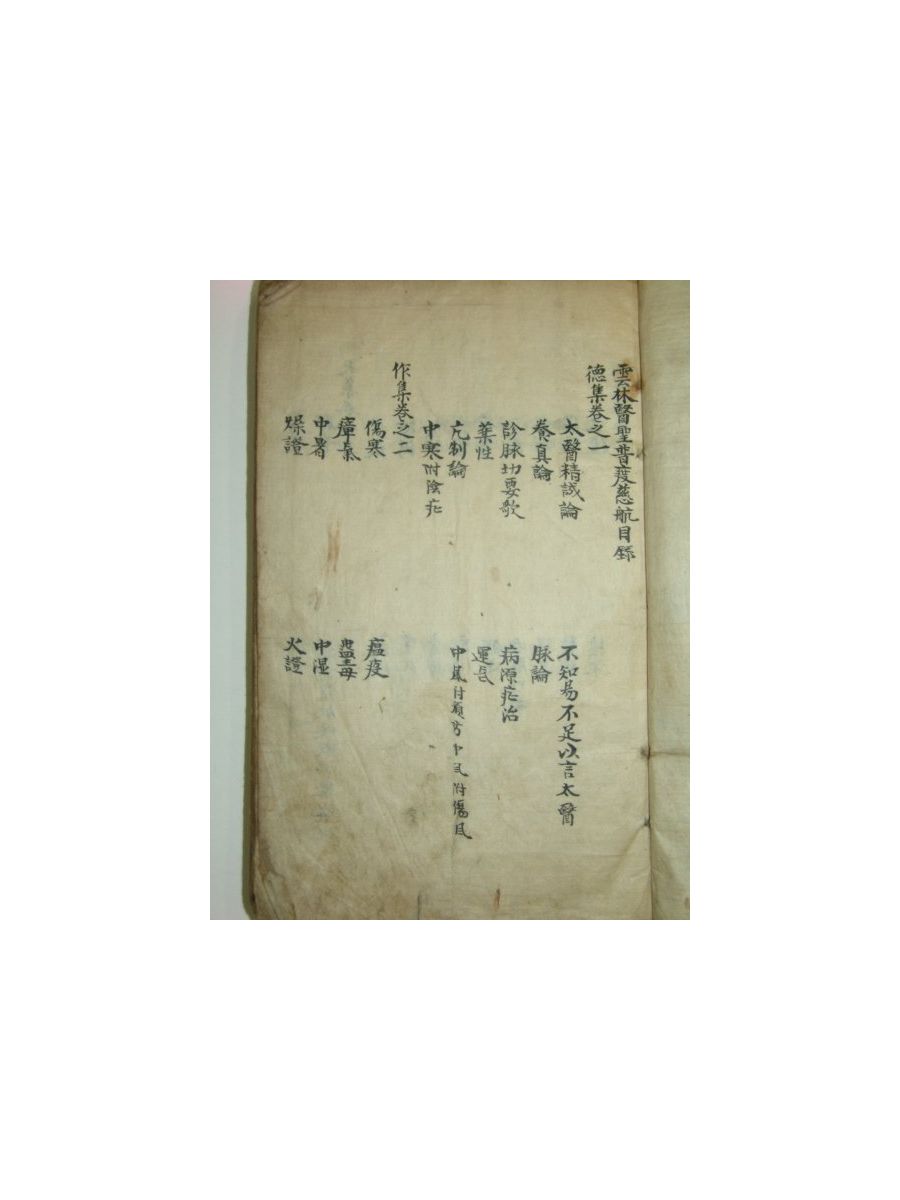 雲林醫聖普度慈航目錄
德集卷之一
太醫精誠論
不知易不足以言太醫
養真論
脉論
診脉切要歌
病源症治
藥性
運氣
亢制論
中寒附陰症
中風附預防中風附傷風
作集卷之二
傷寒
瘟疫
瘴氣
蠱毒
中暑
中湿
燥證
火證